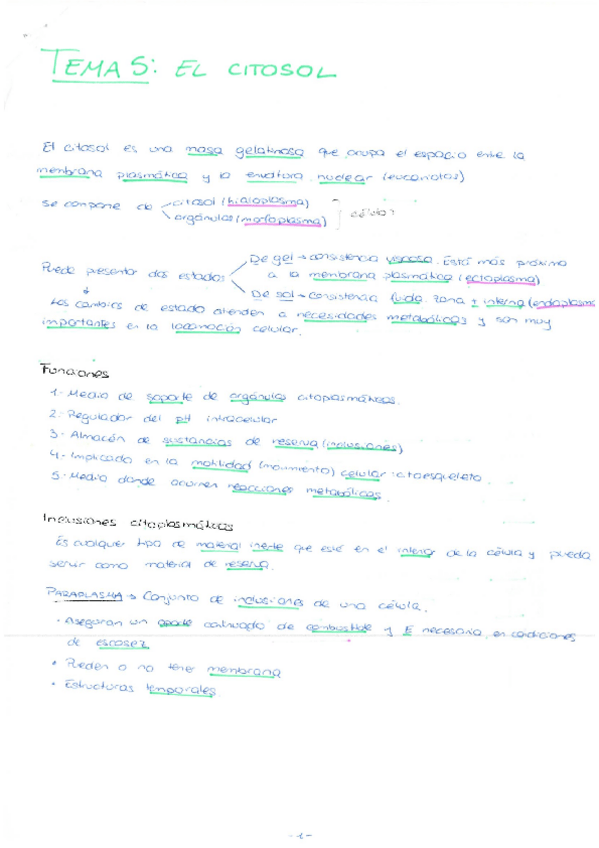 TEMA 5: EL CITOSOL
El citosol es una masa gelatinosa que ocupa el espacio ente la
membrana plasmática y la envoltura nuclear (eucariotas)
Se compone de citosol (hialoplasma)
orgánulos (morfoplasma)
célula
De gel → consistencia viscosa. Está más próximo
Puede presentar dos estados
a la membrana plasmática (ectoplasma)
De sol → consistencia fluida. Zona + interna (endoplasma
Los cambios de estado atienden a necesidades metabólicas y son muy
importantes en la locomoción celular.
Funciones
1- Medio de soporte de orgánulos citoplasmáticos.
2- Regulador del pH intracelular
3- Almacén de sustancias de reserva (inclusiones)
4- Implicado en la motilidad (movimiento) celular: citoesqueleto.
5- Medio donde ocurren reacciones metabólicas.
Inclusiones citoplasmáticas
Es cualquier tipo de material inerte que esté en el interior de la célula y pueda
servir como material de reserva.
PARAPLASMA → Conjunto de inclusiones de una célula.
• Aseguran un aporte continuado de combustible y E necesaria, en condiciones
de escasez
• Pueden o no tener membrana
• Estructuras temporales
-1-